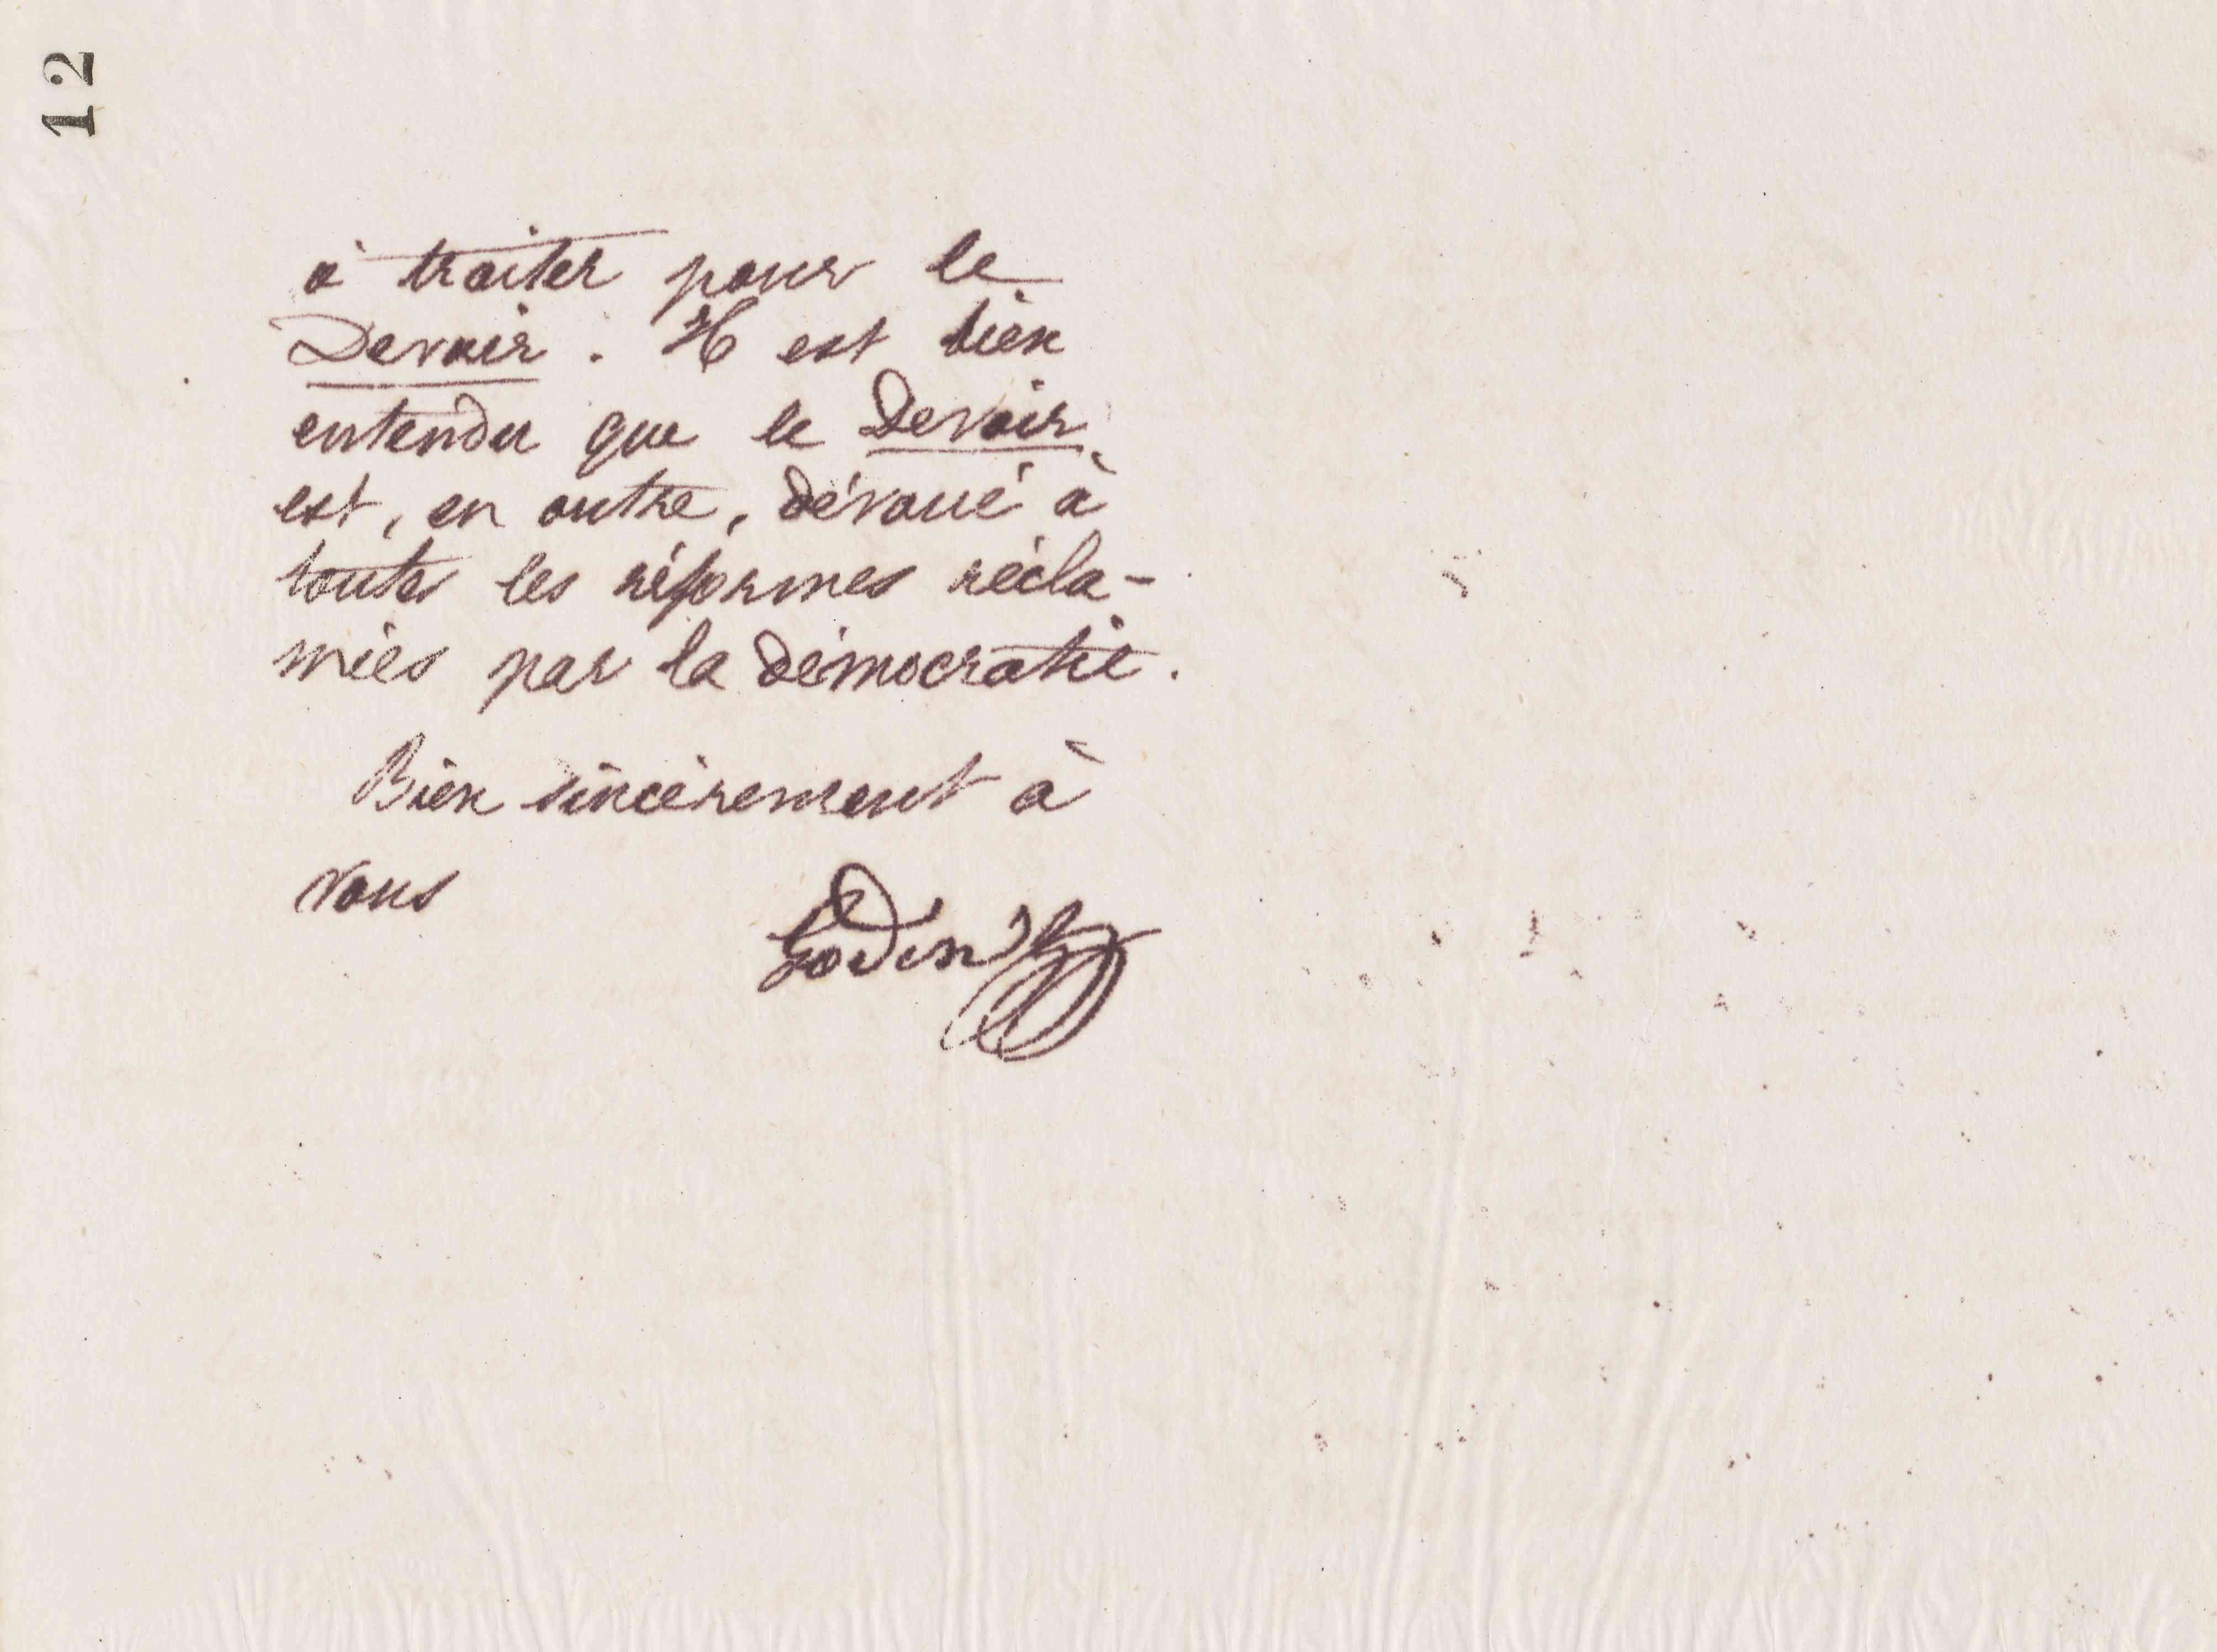 12
à traiter pour le
Devoir. Il est bien
entendu que le Devoir
est, en outre, dévoué à
toutes les réformes récla-
mées par la démocratie.
Bien sincèrement à
vous
Godin